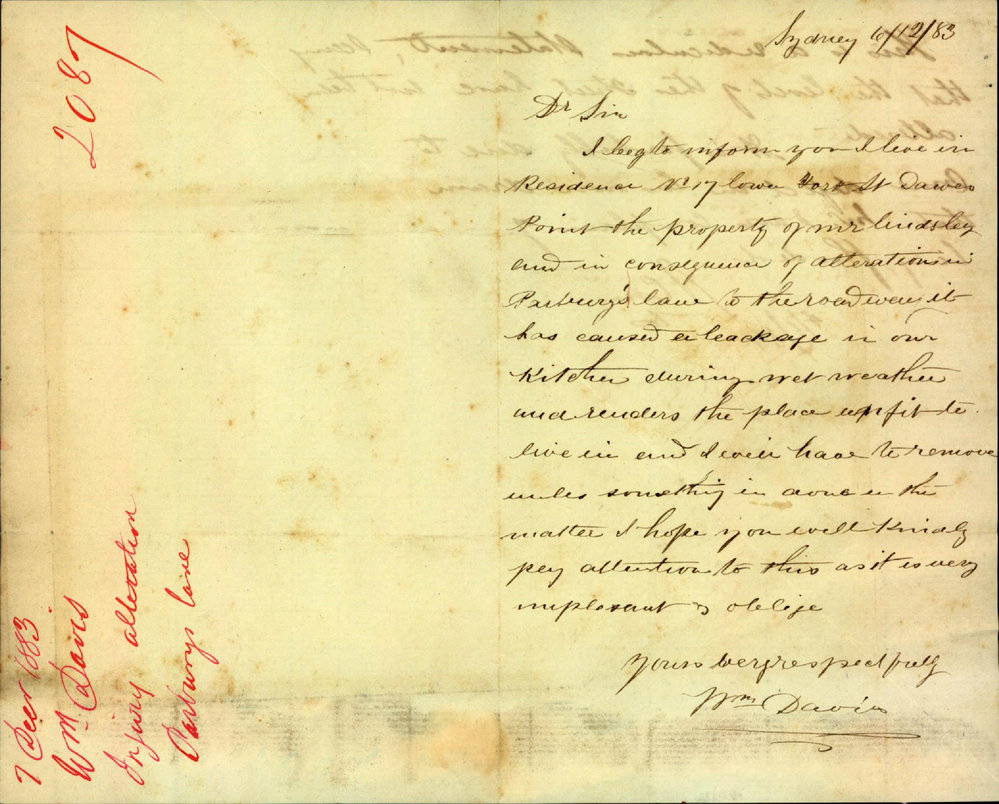 Sydney 6/12/83
Dr Sir
I beg to inform you I live in
Residence No 17 lower York St Dawes
Point the property of mr lindsley
and in consequence of alterations in
Parbury's lane to the roadway it
has caused a leackage in our
Kitchen during wet weather
and renders the place unfit to
live in and I will have to remove
unles something is done in the
matter I hope you will Kindly
pay attention to this as it is very
unplesant & oblige
Yours very respectfully
Wm Davis
2087
7 Decr 1883
Wm Davis
Injury alteration
Parburys lane